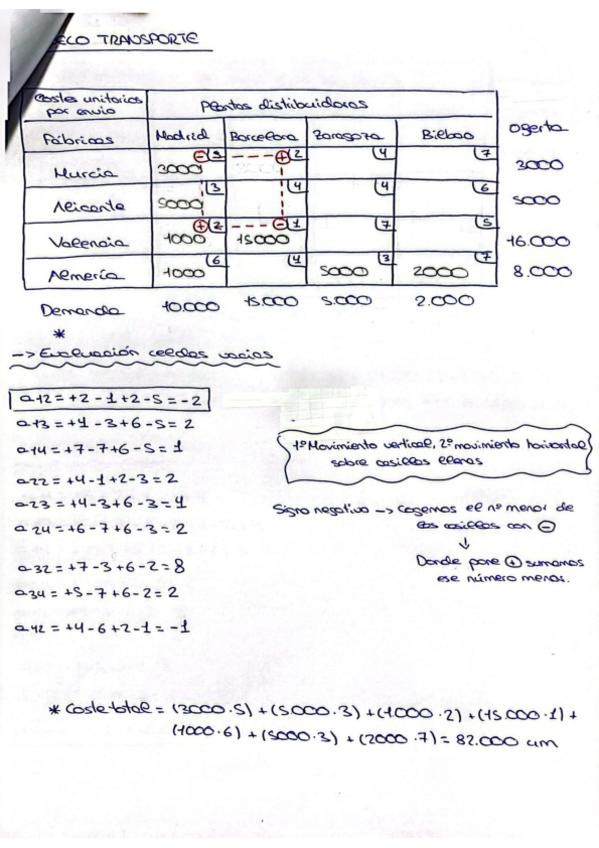 ELO TRANSPORTE
Costes unitarios por envío
Plantas distribuidoras
Fábricas Madrid Barcelona Zaragoza Bilbao Oferta
Murcia 3000 - 5 + 2 4 7 3000
Alicante 5000 3 4 4 6 5000
Valencia 1000 + 2 15000 - 1 7 5 16.000
Almería 1000 6 4 5000 3 2000 7 8.000
Demanda 10.000 15.000 5.000 2.000
*
-> Evaluación celdas vacías
a12 = +2 -1 +2 -5 = -2
a13 = +4 -3 +6 -5 = 2
a14 = +7 -7 +6 -5 = 1
a22 = +4 -1 +2 -3 = 2
a23 = +4 -3 +6 -3 = 1
a24 = +6 -7 +6 -3 = 2
a32 = +7 -3 +6 -2 = 8
a34 = +5 -7 +6 -2 = 2
a42 = +4 -6 +2 -1 = -1
1º Movimiento vertical, 2º movimiento horizontal
sobre casillas llenas
Signo negativo -> Cogemos el nº menor de
las casillas con -
↓
Donde pone + sumamos
ese número menor.
* Coste total = (3000·5) + (5.000·3) + (1.000·2) + (15.000·1) +
(1000·6) + (5000·3) + (2000·7) = 82.000 um